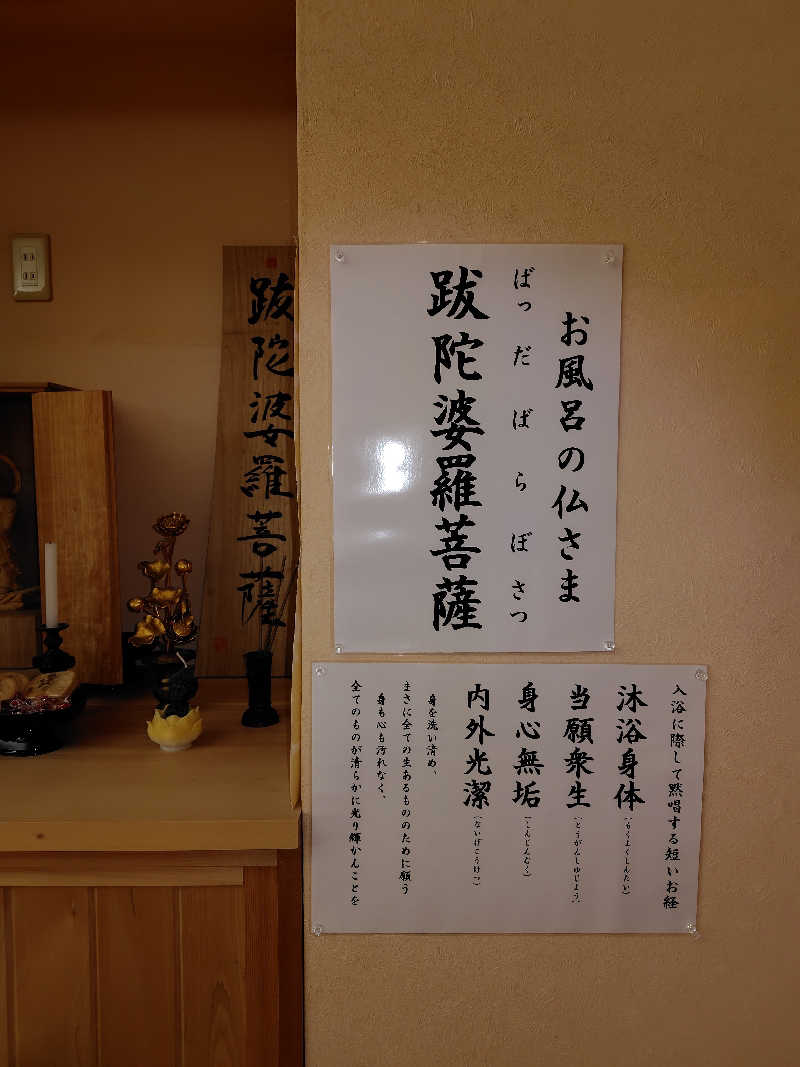 お風呂の仏さま
ばっだばらぼさつ
跋陀婆羅菩薩
跋陀婆羅菩薩
入浴に際して黙唱する短いお経
沐浴身体(もくよくしんたい)
当願衆生(とうがんしゅじょう)
身心無垢(しんじんむく)
内外光潔(ないげこうけつ)
身を洗い清め、
まさに全ての生あるもののために願う
身も心も汚れなく、
全てのものが清らかに光り輝かんことを